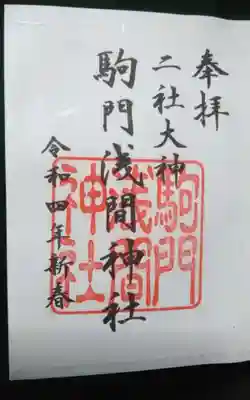 奉拝
二社大神
駒門浅間神社
令和四年新春
駒門
浅間
神社